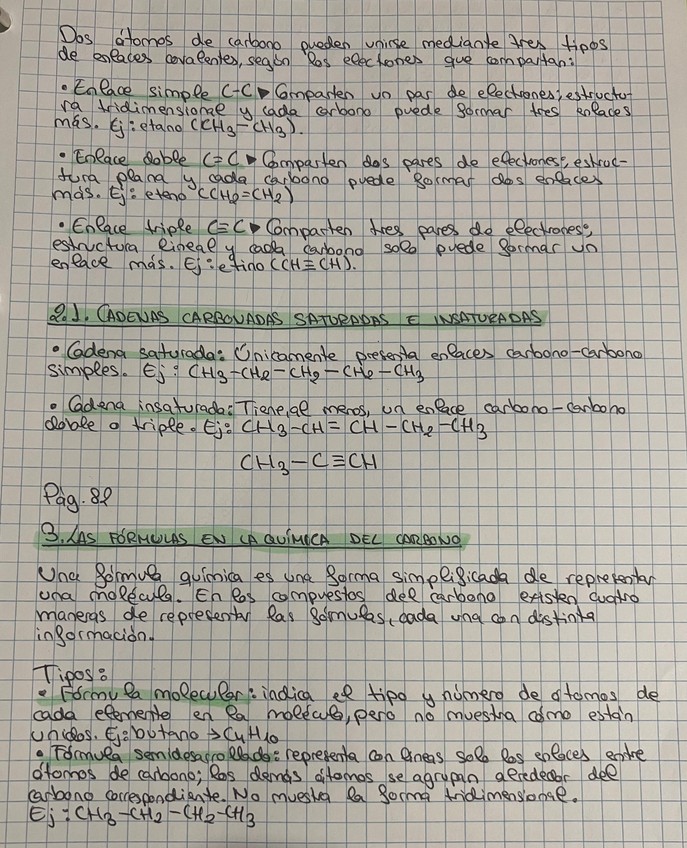 Dos átomos de carbono pueden unirse mediante tres tipos
de enlaces covalentes, según los electrones que compartan:
• Enlace simple C-C ▶ Comparten un par de electrones; estructu-
ra tridimensional y cada carbono puede formar tres enlaces
más. Ej: etano (CH3-CH3).
• Enlace doble C=C ▶ Comparten dos pares de electrones; estruc-
tura plana y cada carbono puede formar dos enlaces
más. Ej: eteno (CH2=CH2)
• Enlace triple C≡C ▶ Comparten tres pares de electrones;
estructura lineal y cada carbono solo puede formar un
enlace más. Ej: etino (CH≡CH).
2.1. CADENAS CARBONADAS SATURADAS E INSATURADAS
• Cadena saturada: Únicamente presenta enlaces carbono-carbono
simples. Ej: CH3-CH2-CH2-CH2-CH3
• Cadena insaturada: Tiene, al menos, un enlace carbono-carbono
doble o triple. Ej: CH3-CH=CH-CH2-CH3
CH3-C≡CH
Pág. 82
3. LAS FÓRMULAS EN LA QUÍMICA DEL CARBONO
Una fórmula química es una forma simplificada de representar
una molécula. En los compuestos del carbono existen cuatro
maneras de representar las fórmulas, cada una con distinta
información.
Tipos:
• Fórmula molecular: indica el tipo y número de átomos de
cada elemento en la molécula, pero no muestra cómo están
unidos. Ej: butano → C4H10
• Fórmula semidesarrollada: representa con líneas solo los enlaces entre
átomos de carbono; los demás átomos se agrupan alrededor del
carbono correspondiente. No muestra la forma tridimensional.
Ej: CH3-CH2-CH2-CH3